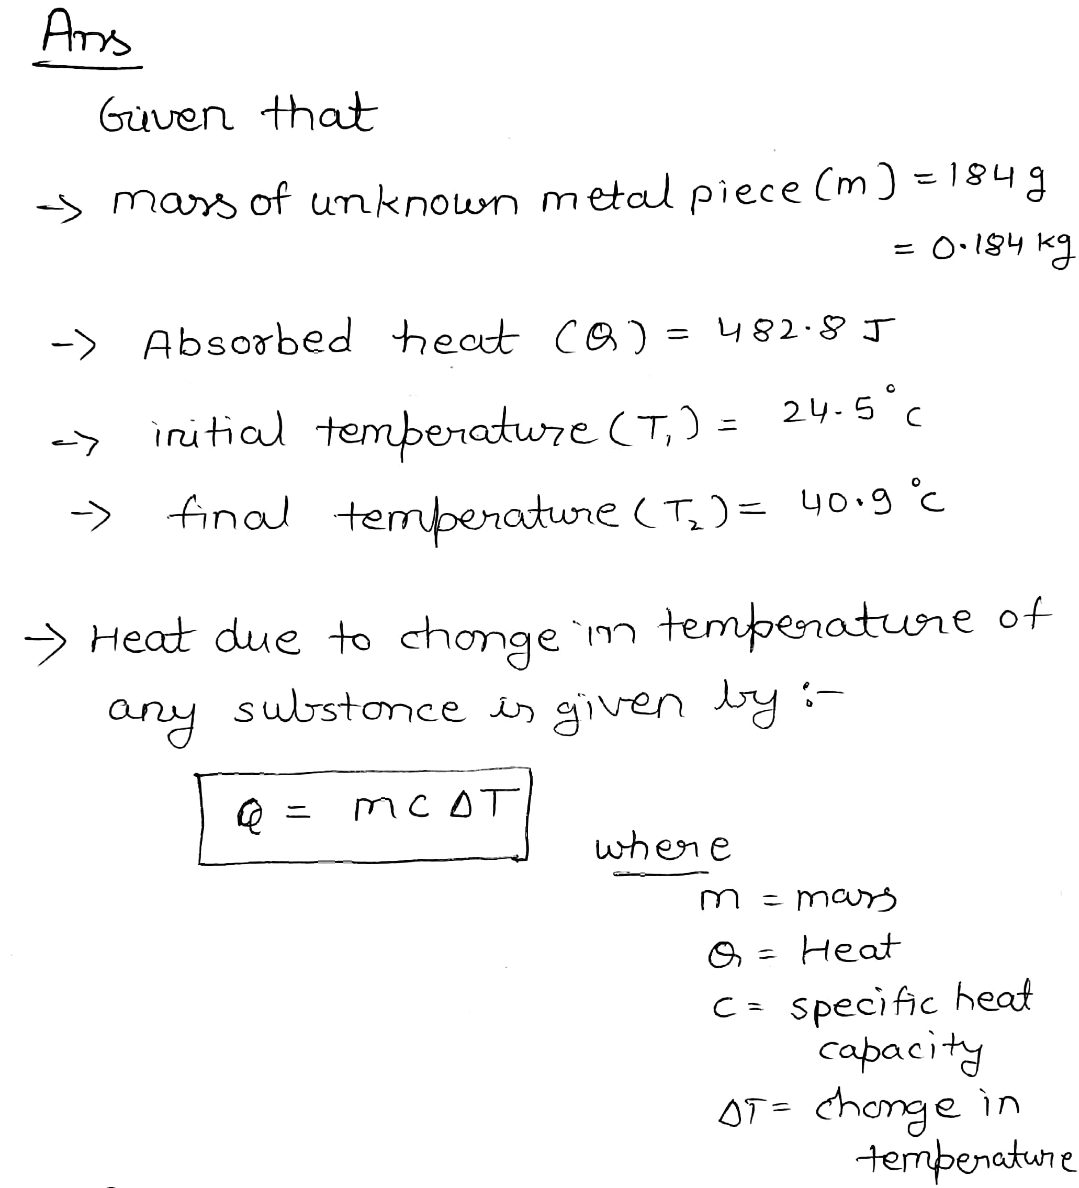 Ans
Given that
-> mass of unknown metal piece (m) = 184 g
= 0.184 kg
-> Absorbed heat (Q) = 482.8 J
-> initial temperature (T₁) = 24.5°c
-> final temperature (T₂) = 40.9 °c
-> Heat due to change in temperature of
any substance is given by :-
Q = mc ΔT
where
m = mass
Q = Heat
c = specific heat
capacity
ΔT = change in
temperature